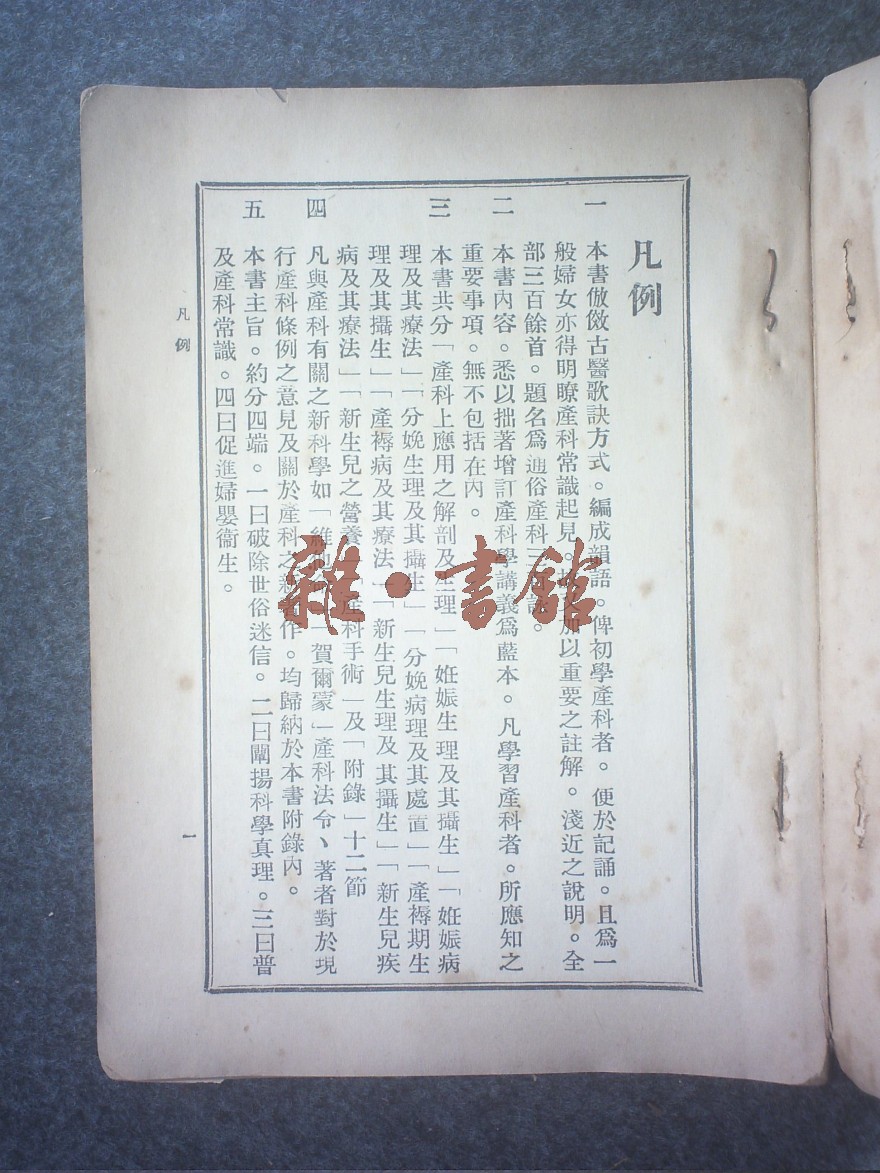 凡例
一 本書倣傚古醫歌訣方式。編成韻語。俾初學產科者。便於記誦。且爲一
般婦女亦得明瞭產科常識起見。加以重要之註解。淺近之說明。全
部三百餘首。題名爲通俗產科三
二 本書內容。悉以拙著增訂產科學講義爲藍本。凡學習產科者。所應知之
重要事項。無不包括在內。
三 本書共分「產科上應用之解剖及生理」「姙娠生理及其攝生」「姙娠病
理及其療法」「分娩生理及其攝生」「分娩病理及其處置」「產褥期生
理及其攝生」「產褥病及其療法」「新生兒生理及其攝生」「新生兒疾
病及其療法」「新生兒之營養」「產科手術」及「附錄」十二節
四 凡與產科有關之新科學如「維他 」「賀爾蒙」產科法令、著者對於現
行產科條例之意見及關於產科之 作。均歸納於本書附錄內。
五 本書主旨。約分四端。一曰破除世俗迷信。二曰闡揚科學真理。三曰普
及產科常識。四曰促進婦嬰衞生。
凡例
一
雜·書館